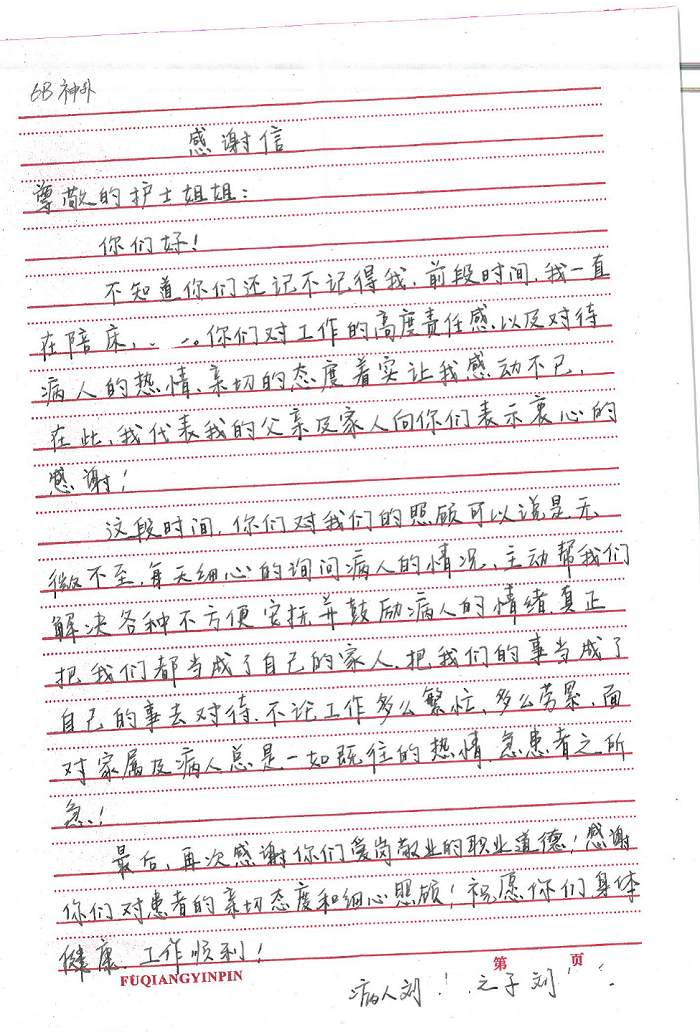 6B神外
感谢信
尊敬的护士姐姐：
你们好！
不知道你们还记不记得我，前段时间，我一直
在陪床，. . 。你们对工作的高度责任感、以及对待
病人的热情、亲切的态度着实让我感动不已，
在此、我代表我的父亲及家人向你们表示衷心的
感谢！
这段时间，你们对我们的照顾可以说是无
微不至，每天细心的询问病人的情况、主动帮我们
解决各种不方便安抚并鼓励病人的情绪，真正
把我们都当成了自己的家人，把我们的事当成了
自己的事去对待，不论工作多么繁忙，多么劳累，面
对家属及病人总是一如既往的热情，急患者之所
急！
最后，再次感谢你们爱岗敬业的职业道德！感谢
你们对患者的亲切态度和细心照顾！祝愿你们身体
健康，工作顺利！
FUQIANGYINPIN 第 页
病人刘 之子刘